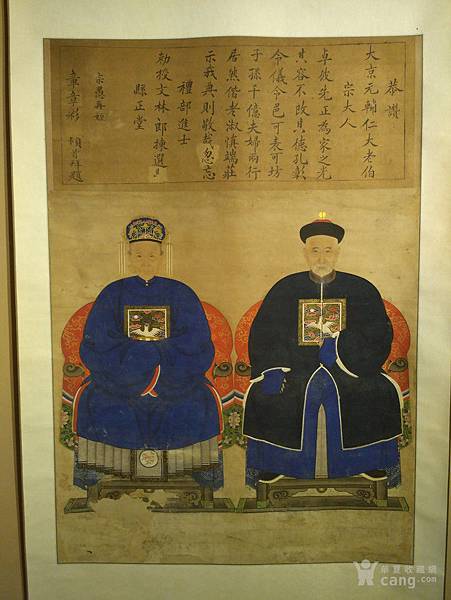 恭讚
大京元輔仁大老伯
宗大人
卓攸先正為家之光
其容不改其德孔彰
令儀令色可表可坊
子孫千億夫婦兩行
居然偕老淑慎端莊
示我典則敬哉忽忘
禮部進士
勅授文林郎揀選
縣正堂
宗愚再姪
章彩 頓首拜題
華夏收藏網
cang.com